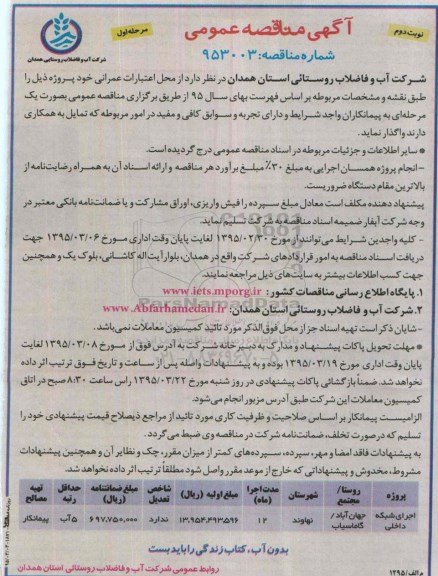 نوبت دوم
آگهی مناقصه عمومی
مرحله اول
شماره مناقصه: ۹۵۳۰۰۳
شرکت آب و فاضلاب روستایی همدان
شرکت آب و فاضلاب روستائی استان همدان در نظر دارد از محل اعتبارات عمرانی خود پروژه ذیل را
طبق نقشه و مشخصات مربوطه بر اساس فهرست بهای سال ۹۵ از طریق برگزاری مناقصه عمومی بصورت یک
مرحله‌ای به پیمانکاران واجد شرایط و دارای تجربه و سوابق کافی و مفید در امور مربوطه که تمایل به همکاری
دارند واگذار نماید.
* سایر اطلاعات و جزئیات مربوطه در اسناد مناقصه عمومی درج گردیده است.
- انجام پروژه همسان اجرایی به مبلغ ۳۰٪ مبلغ برآورد هر مناقصه و ارائه اسناد آن به همراه رضایت‌نامه از
بالاترین مقام دستگاه ضروریست.
پیشنهاد دهنده مکلف است معادل مبلغ سپرده را فیش واریزی، اوراق مشارکت و یا ضمانت‌نامه بانکی معتبر در
وجه شرکت آبفار ضمیمه اسناد مناقصه به شرکت تسلیم نماید.
- کلیه واجدین شرایط می‌توانند از مورخ ۱۳۹۵/۰۲/۳۰ لغایت پایان وقت اداری مورخ ۱۳۹۵/۰۳/۰۶ جهت
دریافت اسناد مناقصه به امور قراردادهای شرکت واقع در همدان، بلوار آیت‌اله کاشانی، بلوک یک و همچنین
جهت کسب اطلاعات بیشتر به سایت‌های ذیل مراجعه نمایند.
۱. پایگاه اطلاع رسانی مناقصات کشور: www.iets.mporg.ir
۲. شرکت آب و فاضلاب روستائی استان همدان: www.Abfarhamedan.ir
- شایان ذکر است تهیه اسناد جز از محل فوق‌الذکر مورد تائید کمیسیون معاملات نمی‌باشد.
* مهلت تحویل پاکات پیشنهاد و مدارک به دبیرخانه شرکت به آدرس فوق از مورخ ۱۳۹۵/۰۳/۰۸ لغایت
پایان وقت اداری مورخ ۱۳۹۵/۰۳/۱۹ بوده و به پیشنهادات واصله پس از ساعت و تاریخ فوق ترتیب اثر داده
نخواهد شد. ضمناً بازگشائی پاکات پیشنهادی در روز شنبه مورخ ۱۳۹۵/۰۳/۲۲ راس ساعت ۸:۳۰ صبح در اتاق
کمیسیون معاملات این شرکت طبق آدرس مزبور انجام می‌شود.
الزامیست پیمانکار بر اساس صلاحیت و ظرفیت کاری مورد تائید از مراجع ذیصلاح قیمت پیشنهادی خود را
تسلیم که درصورت تخلف، ضمانت‌نامه شرکت در مناقصه وی ضبط می‌گردد.
به پیشنهادات فاقد امضا و مهر، سپرده، سپرده‌های کمتر از میزان مقرر، چک و نظایر آن و همچنین پیشنهادات
مشروط، مخدوش و پیشنهاداتی که خارج از موعد مقرر واصل شود مطلقاً ترتیب اثر داده نخواهد شد.
پروژه روستا/مجتمع شهرستان مدت اجرا (ماه) مبلغ اولیه (ریال) شاخص تعدیل مبلغ ضمانتنامه (ریال) حداقل رتبه تهیه مصالح
اجرای شبکه داخلی جهان‌آباد/گاماسیاب نهاوند ۱۲ ۱۳,۹۵۴,۴۹۳,۵۹۶ ندارد ۶۹۷,۷۵۰,۰۰۰ ۵ آب پیمانکار
بدون آب، کتاب زندگی را باید بست
روابط عمومی شرکت آب و فاضلاب روستائی استان همدان
م الف/۱۲۹۵
ParsNamadData